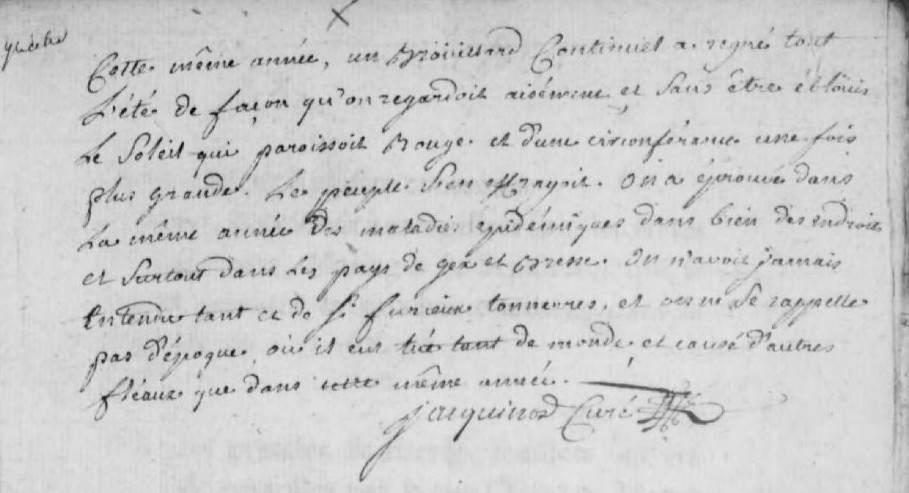 Cette même année, un Brouillard Continuel a regné tout
L'été de façon qu'on regardoit aisément et sans être éblouis
Le Soleil qui paroissoit Rouge et d'une circonférence une fois
plus grande. Le peuple s'en effrayoit. On a éprouvé dans
La même année des maladies épidémiques dans bien des endroits
et surtout dans Les pays de gex et Bresse. On n'avoit jamais
Entendu tant et de si furieux tonnerres, et on ne se rappelle
pas d'époque où il eut tué tant de monde, et causé d'autres
fléaux que dans cette même année.
Jacquinod Curé